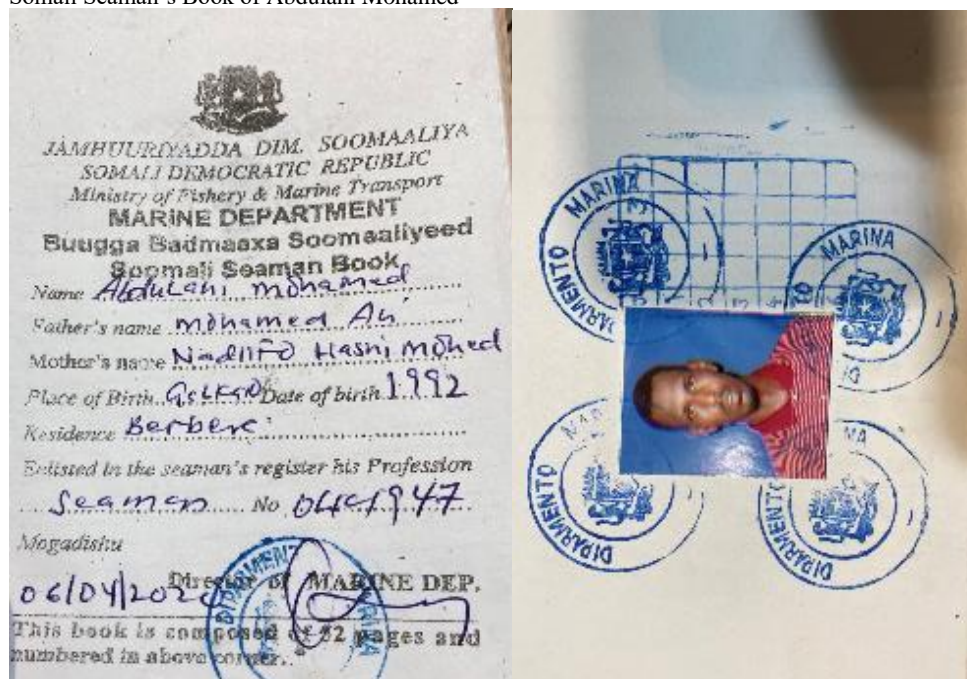 Somali Seaman's Book of Abdulahi Mohamed
JAMHUURIYADDA DIM. SOOMAALIYA
SOMALI DEMOCRATIC REPUBLIC
Ministry of Fishery & Marine Transport
MARINE DEPARTMENT
Buugga Badmaaxa Soomaaliyeed
Soomali Seaman Book
Name Abdulahi mohamed
Father's name mohamed Ali
Mother's name Nadiifo Hashi mohed
Place of Birth Date of birth 1992
Residence Berbera
Enlisted in the seaman's register his Profession
Seaman No
Mogadishu
Director of MARINE DEP.
06/04/202
This book is composed of 32 pages and
numbered in above corner.
DIPARMENTO MARINA
MARINA
DIPARMENTO
MARINA
DIPARMENTO
DIPARMENTO